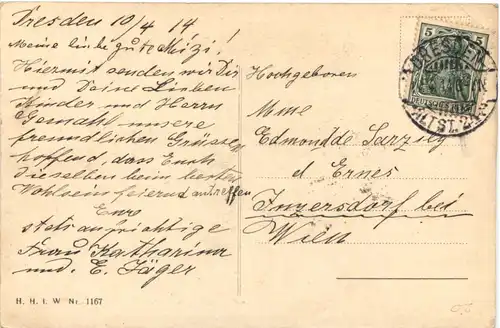 Dresden 10/4 14
Meine liebe gute Mizi!
Hiermit senden wir Dir
und Deine Lieben
Kinder und Herrn
Gemahl unsere
freundlichen Grüsse
hoffend, dass Euch
dieselben beim besten
Wohlsein feiernd antreffen
Eure
stets aufrichtige
Frau Katharina
und. E. Jäger
H. H. I. W Nr. 1167
Hochgeboren
Mme
Edmond de Sarzily
d Ernes
Inzersdorf bei
Wien
5
DRESDEN
DEUTSCHES REICH
ALTST.